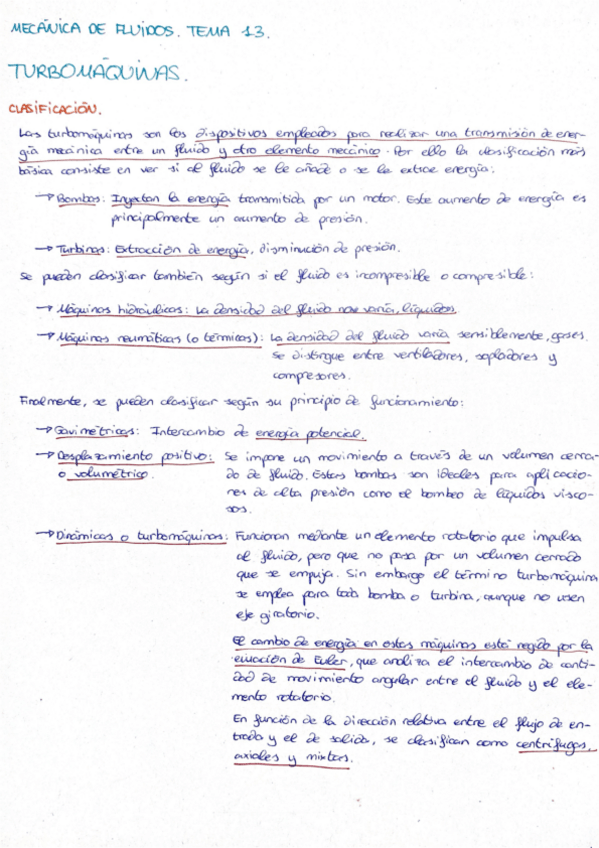 MECÁNICA DE FLUIDOS. TEMA 13.
TURBOMÁQUINAS.
CLASIFICACIÓN.
Las turbomáquinas son los dispositivos empleados para realizar una transmisión de ener-
gía mecánica entre un fluido y otro elemento mecánico. Por ello la clasificación más
básica consiste en ver si al fluido se le añade o se le extrae energía:
→ Bombas: Inyectan la energía transmitida por un motor. Este aumento de energía es
principalmente un aumento de presión.
→ Turbinas: Extracción de energía, disminución de presión.
Se pueden clasificar también según si el fluido es incompresible o compresible:
→ Máquinas hidráulicas: La densidad del fluido no varía, líquidos.
→ Máquinas neumáticas (o térmicas): La densidad del fluido varía sensiblemente, gases.
Se distingue entre ventiladores, sopladores y
compresores.
Finalmente, se pueden clasificar según su principio de funcionamiento:
→ Gavimétricas: Intercambio de energía potencial.
→ Desplazamiento positivo: Se impone un movimiento a través de un volumen cerra-
o volumétrico. do de fluido. Estas bombas son ideales para aplicacio-
nes de alta presión como el bombeo de líquidos visco-
sos.
→ Dinámicas o turbomáquinas: Funcionan mediante un elemento rotatorio que impulsa
al fluido, pero que no pasa por un volumen cerrado
que se empuja. Sin embargo el término turbomáquina
se emplea para toda bomba o turbina, aunque no usen
eje giratorio.
El cambio de energía en estas máquinas está regido por la
ecuación de Euler, que analiza el intercambio de canti-
dad de movimiento angular entre el fluido y el ele-
mento rotatorio.
En función de la dirección relativa entre el flujo de en-
trada y el de salida, se clasifican como centrífugas,
axiales y mixtas.